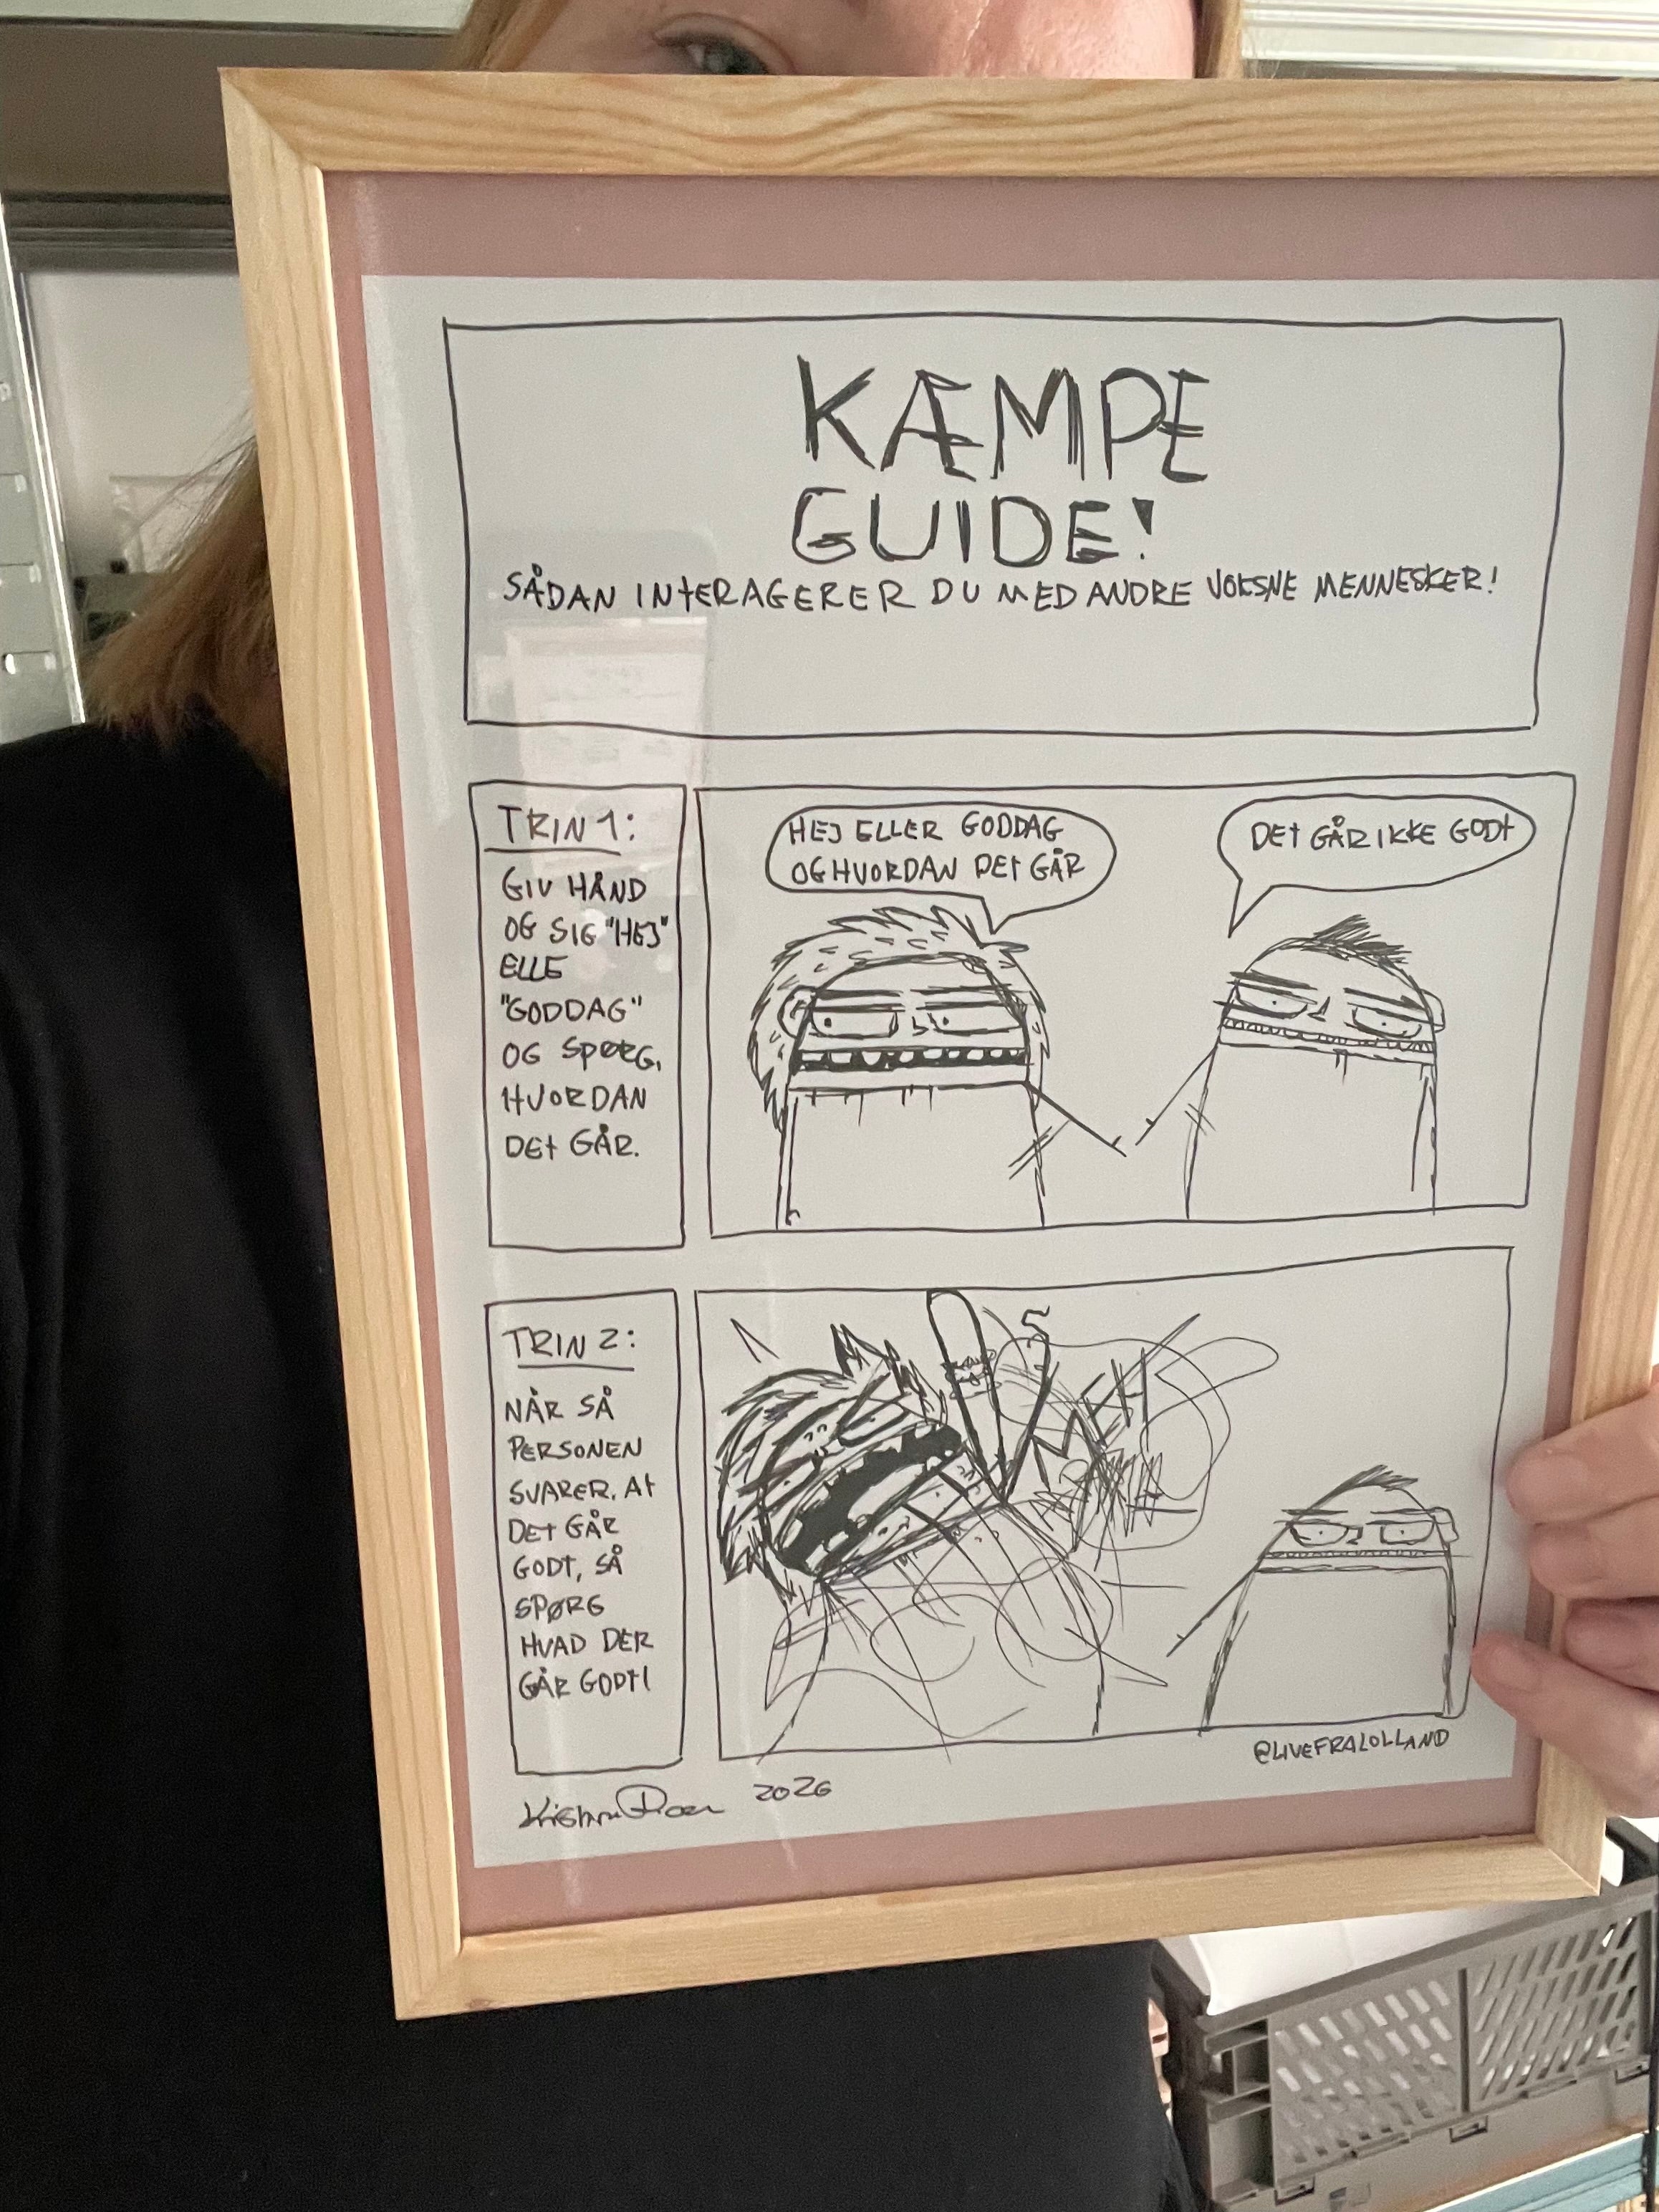 KÆMPE
GUIDE!
SÅDAN INTERAGERER DU MED ANDRE VOKSNE MENNESKER!
TRIN 1:
GIV HÅND
OG SIG "HEJ"
ELLE
"GODDAG"
OG SPØRG,
HVORDAN
DET GÅR.
HEJ ELLER GODDAG
OG HVORDAN DET GÅR
DET GÅR IKKE GODT
TRIN 2:
NÅR SÅ
PERSONEN
SVARER, AT
DET GÅR
GODT, SÅ
SPØRG
HVAD DER
GÅR GODT!
@LIVEFRALOLLAND
2026